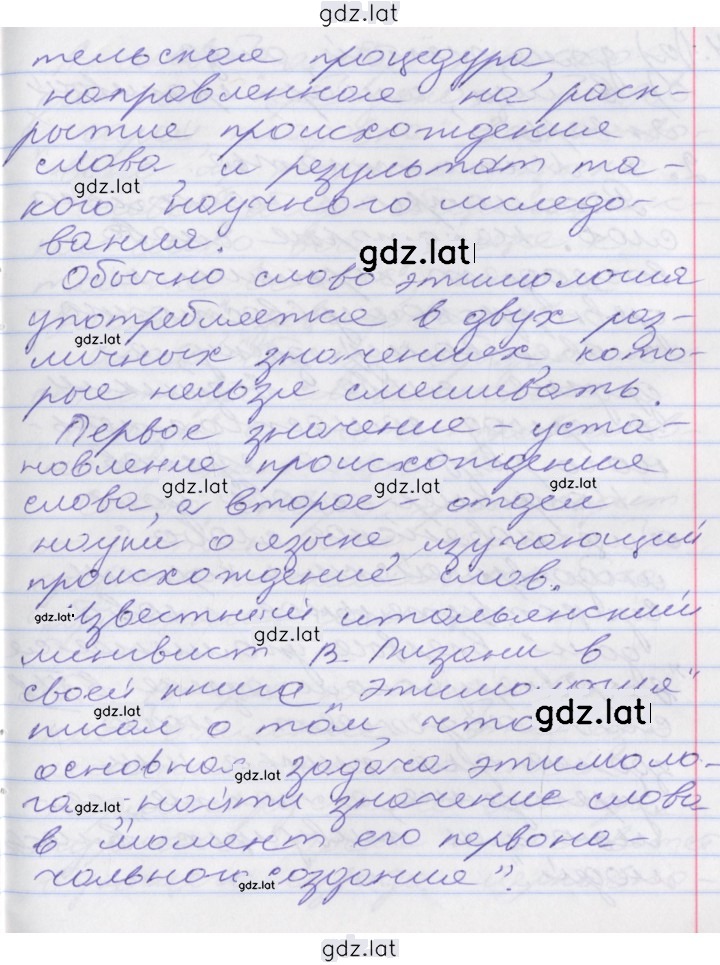 gdz.lat
тельская процедура,
направленная на раск-
рытие происхождения
слова, и результат та-
gdz.lat
кого научного исследо-
вания.
gdz.lat
Обычно слово этимология
употребляется в двух раз-
gdz.lat
личных значениях, кото-
рые нельзя смешивать.
Первое значение - уста-
новление происхождения
gdz.lat gdz.lat gdz.lat
слова, а второе - отдел
науки о языке, изучающий
происхождение слов.
gdz.lat Известный итальянский
gdz.lat
лингвист В. Пизани в
своей книге "Этимология"
gdz.lat gdz.lat
писал о том, что
основная gdz.lat задача этимоло-
га gdz.lat найти значение слова
в "момент его первона-
чального gdz.lat создания".
gdz.lat